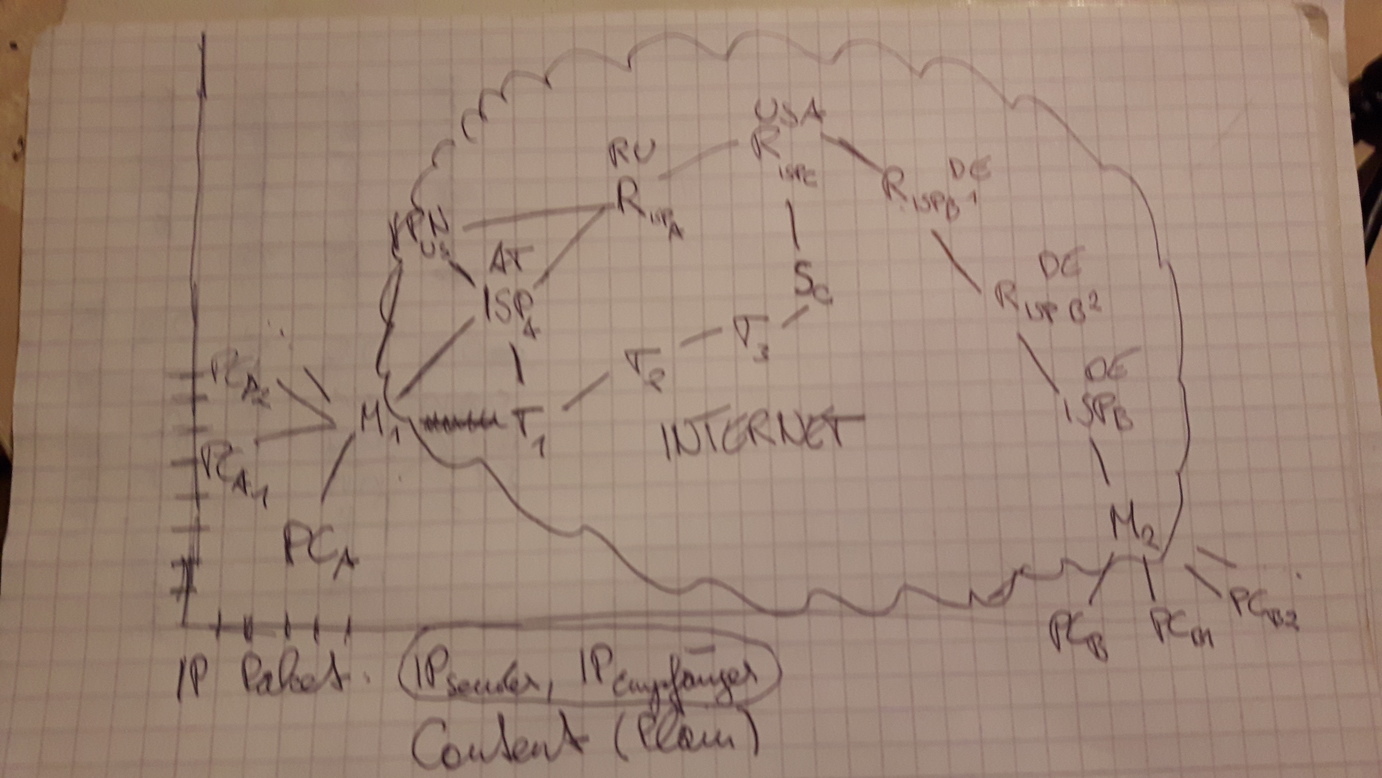 USA
R ISPC
RU
R ISPA
DE
R ISPB1
VPN US
AT
ISP A
DE
R ISPB2
S C
T 3
T 2
PC A2
DE
ISP B
M 1
T 1
INTERNET
PC A1
M 2
PC A
PC B2
PC B
PC B1
IP Paket: IP sender, IP empfänger
Content (Plain)